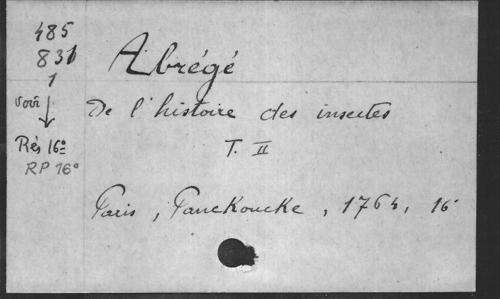 485
831
1
voir
Rés 16º
RP 16º
Abrégé
De l'histoire des insectes
T. II
Paris, Panckoucke, 1764, 16º